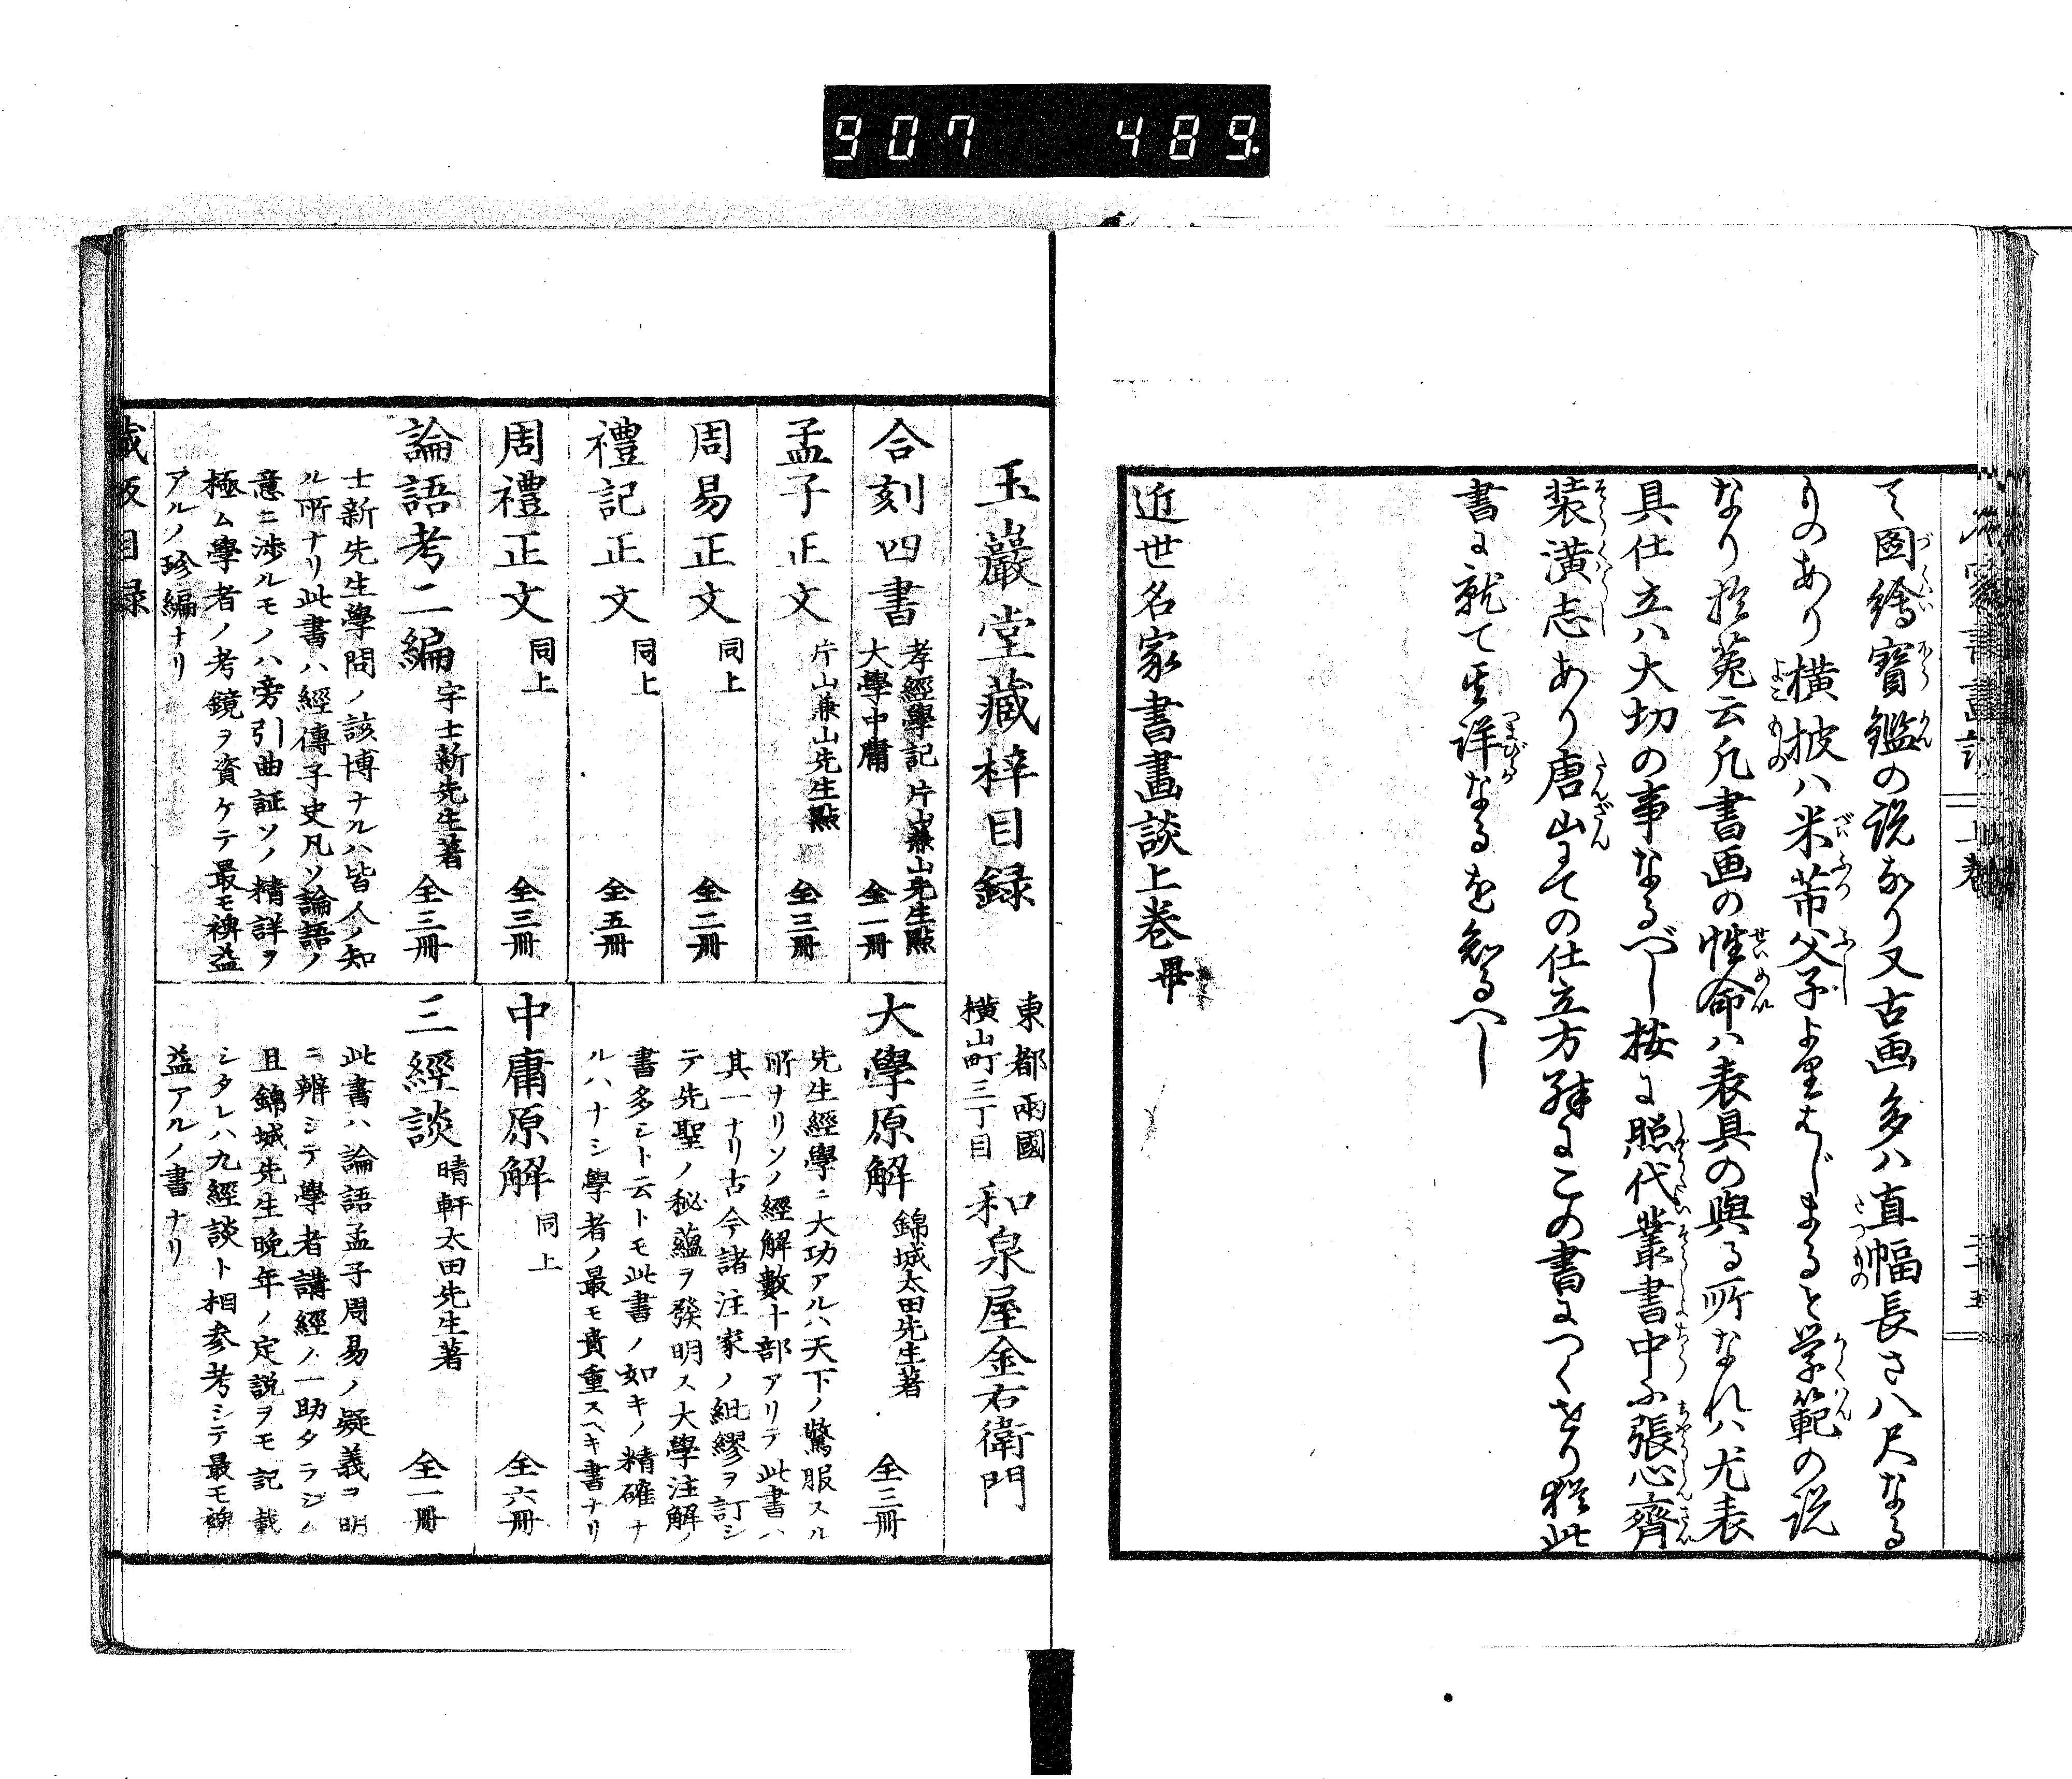 907 489
て圖繪寳鑑の説あり又古画多ハ直幅長さ八尺なる
ものあり横披ハ米芾父子より里はじまると学範の説
なり捴菟云凡書画の性命ハ表具の與る所なれハ尤表
具仕立ハ大切の事なるべし按に照代叢書中に張心齊
装潢志あり唐山にての仕立方殊にこの書につくせり猶此
書に就て其詳なるを知るへし
近世名家書畫談上巻畢
玉巖堂藏梓目録
東都兩國
横山町三丁目
和泉屋金右衛門
合刻四書
孝經學記
大學中庸
片山兼山先生點
全一冊
孟子正文 片山兼山先生點 全三冊
周易正文 同上 全二冊
禮記正文 同上 全五冊
周禮正文 同上 全三冊
論語考二編 宇士新先生著 全三冊
士新先生學問ノ該博ナルハ皆人ノ知
ル所ナリ此書ハ經傳子史凡ソ論語ノ
意ニ渉ルモノハ旁引曲証ソノ精詳ヲ
極ム學者ノ考鏡ヲ資ケテ最モ裨益
アルノ珍編ナリ
大學原解 錦城太田先生著 全三冊
先生經學ニ大功アルハ天下ノ驚服スル
所ナリソノ經解數十部アリテ此書ハ
其一ナリ古今諸注家ノ紕繆ヲ訂シ
テ先聖ノ秘蘊ヲ發明ス大學注解ノ
書多シト云トモ此書ノ如キノ精確ナ
ルハナシ學者ノ最モ貴重スヘキ書ナリ
中庸原解 同上 全六冊
三經談 晴軒太田先生著 全一冊
此書ハ論語孟子周易ノ疑義ヲ明
ニ辨シテ學者講經ノ一助タラシム
且錦城先生晩年ノ定説ヲモ記載
シタレハ九經談ト相參考シテ最モ裨
益アルノ書ナリ
藏版目録